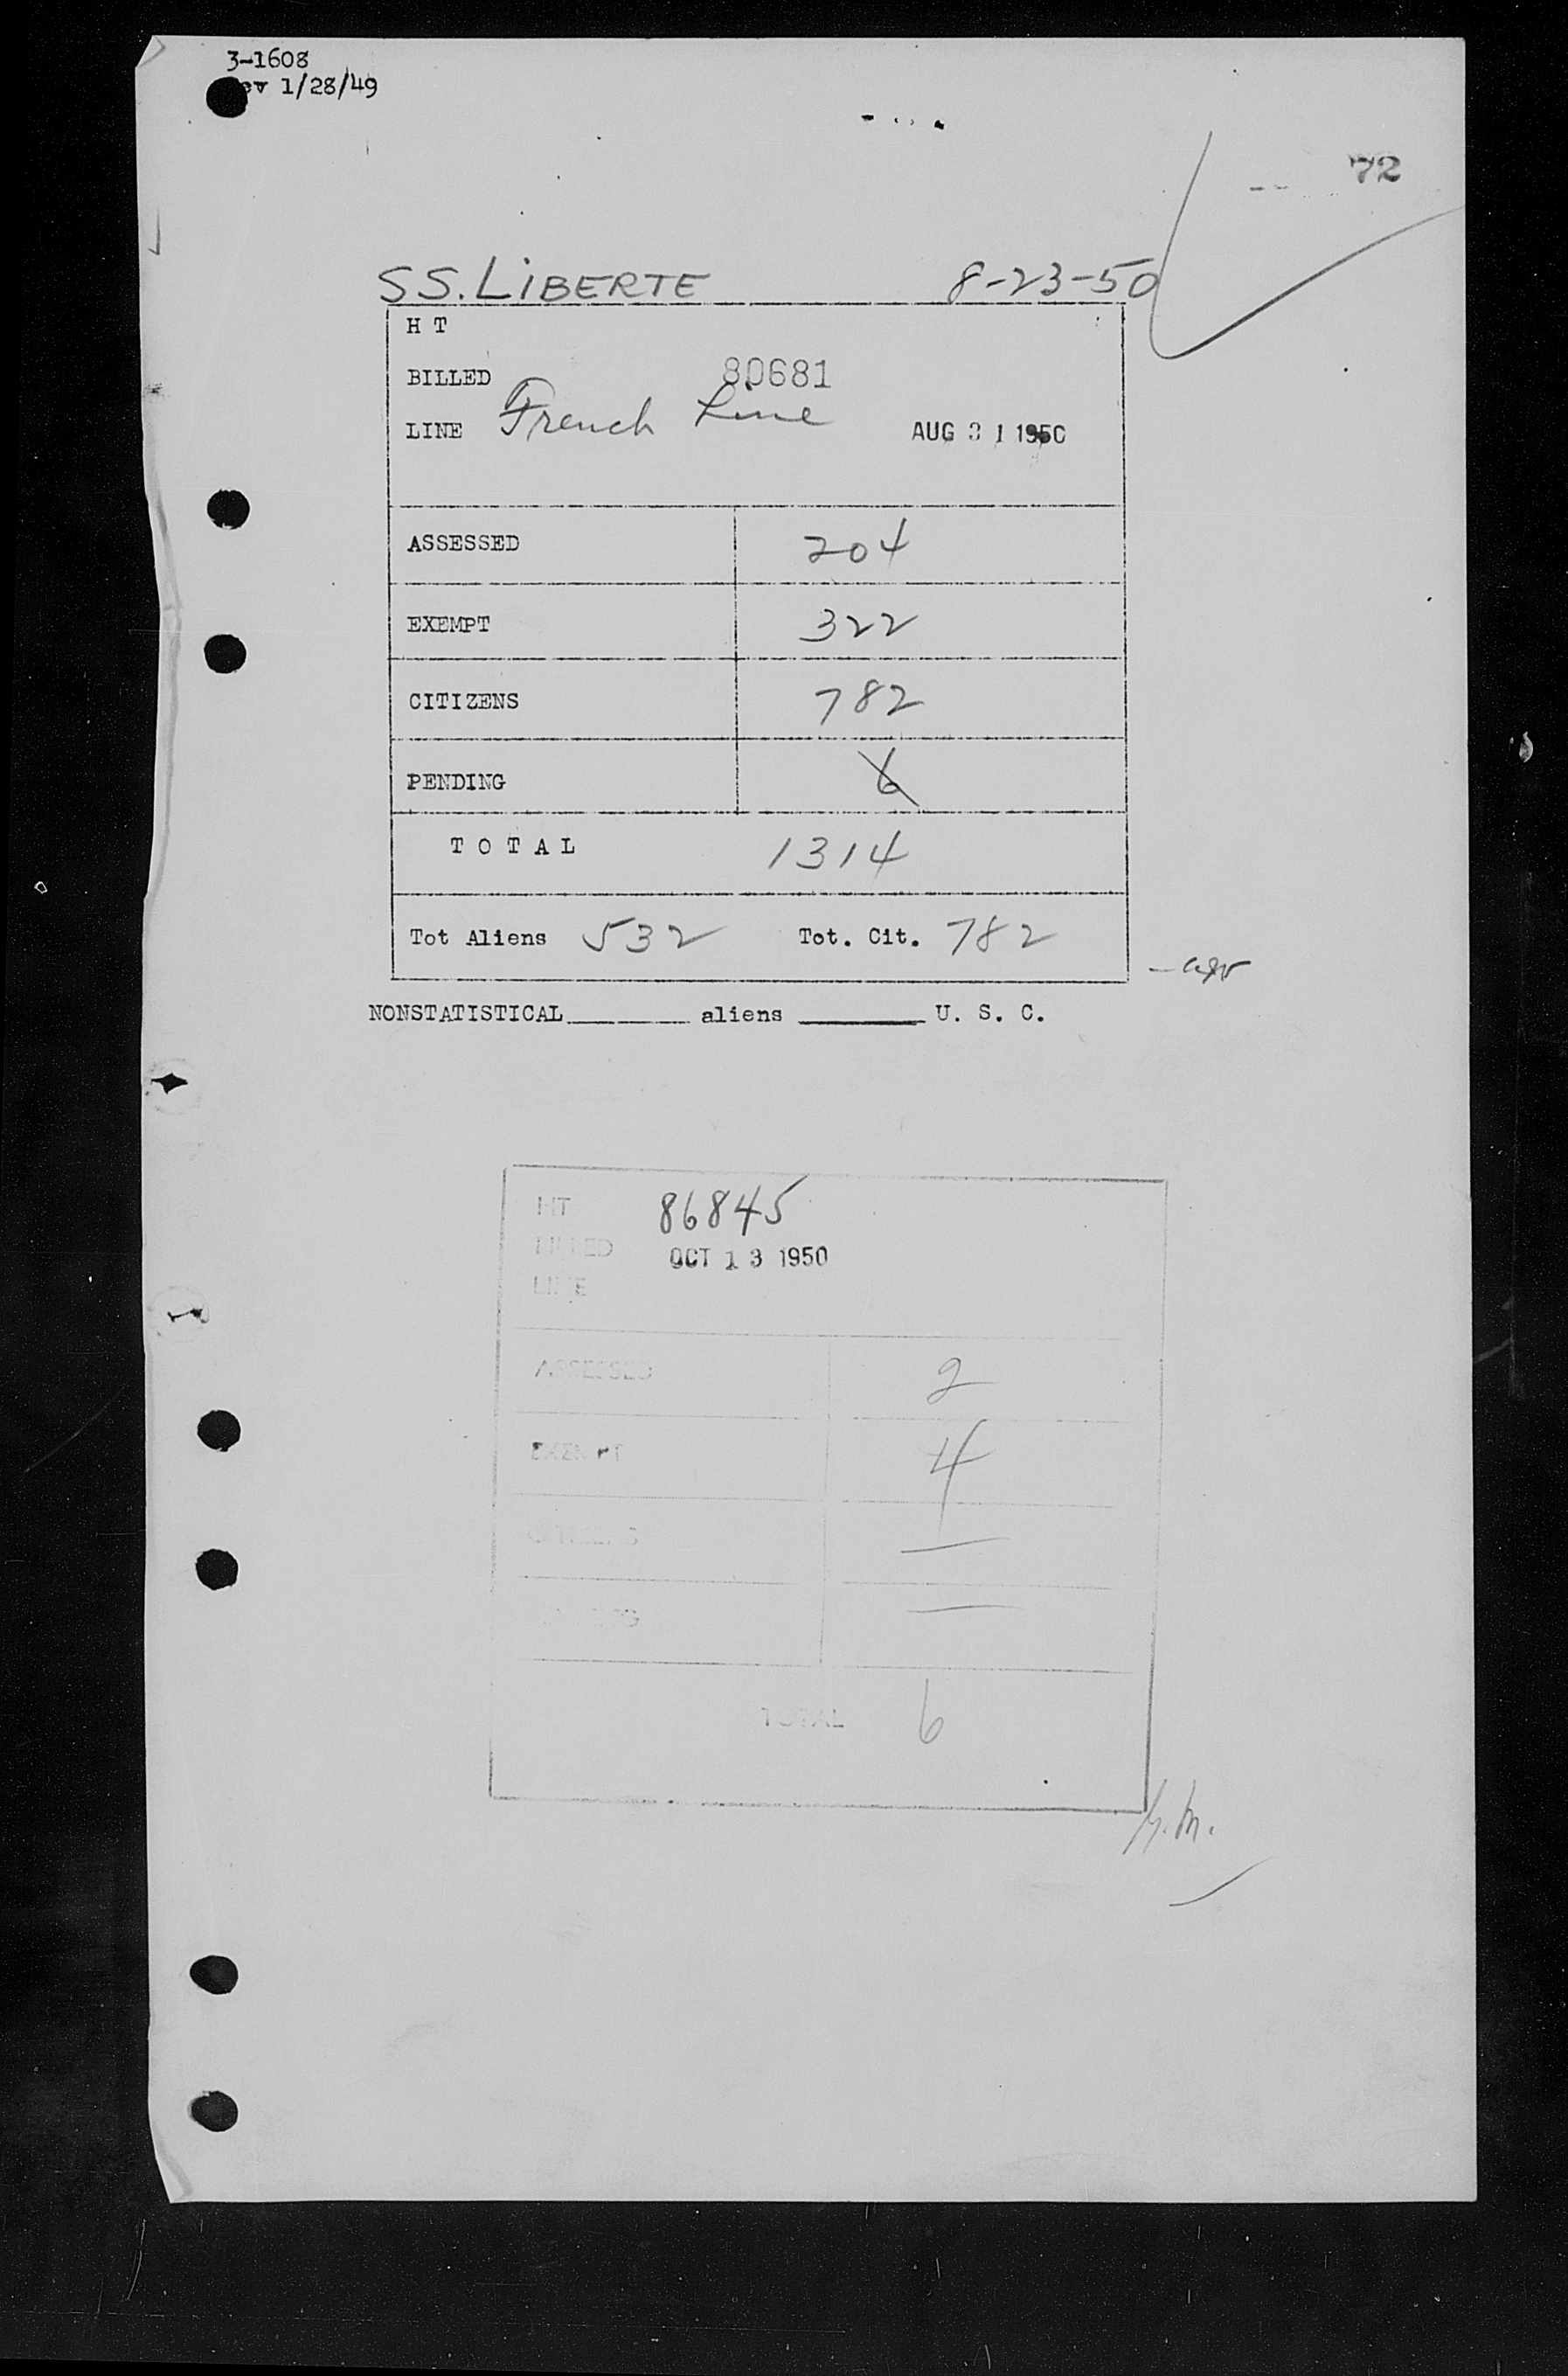 3-1608
ev 1/28/49
72
SS. LiBERTE 8-23-50
H T
BILLED 80681
LINE French Line AUG 31 1950
ASSESSED 204
EXEMPT 322
CITIZENS 782
PENDING 6
TOTAL 1314
Tot Aliens 532 Tot. Cit. 782
NONSTATISTICAL aliens U. S. C.
HT 86845
BILLED OCT 13 1950
LINE
ASSESSED 2
EXEMPT 4
CITIZENS —
—
TOTAL 6